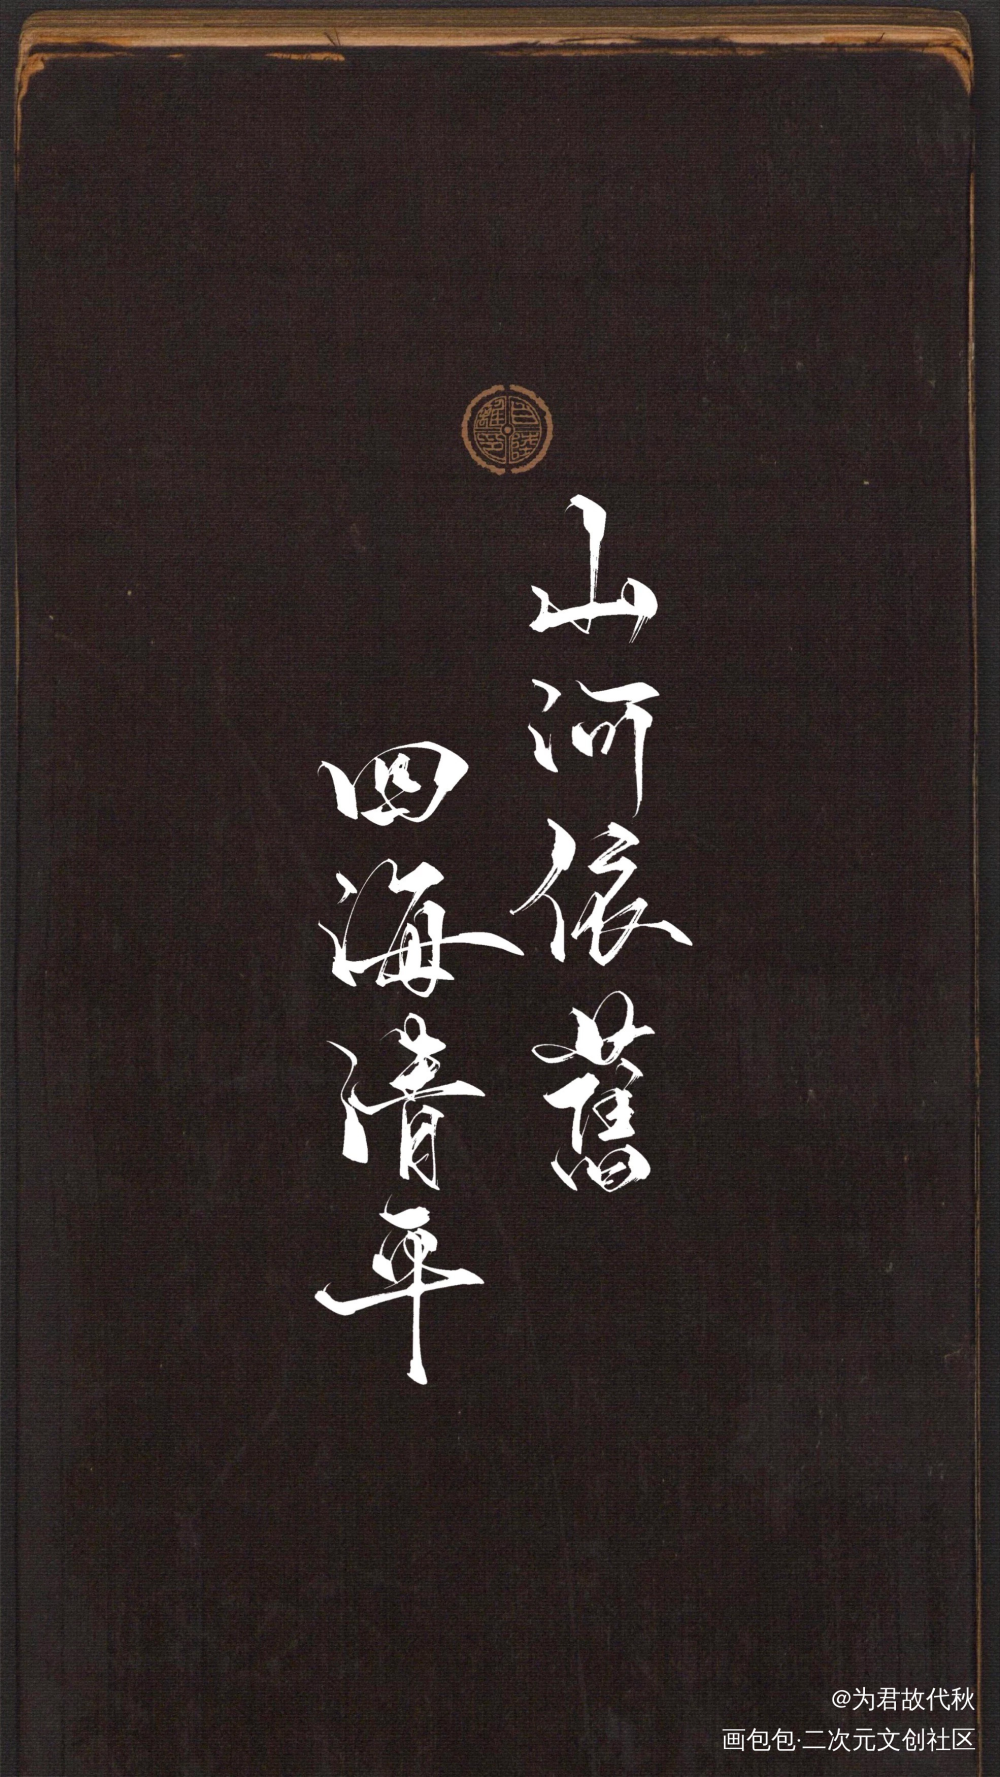 山河依舊
四海清平
@为君故代秋
画包包·二次元文创社区